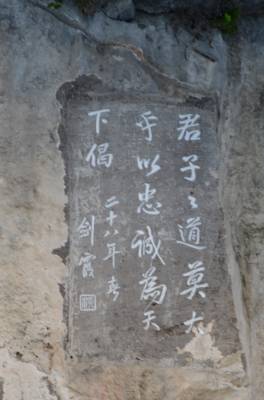 君子〻道莫大
乎以忠诚為天
下倡
二十八年春
劍霞